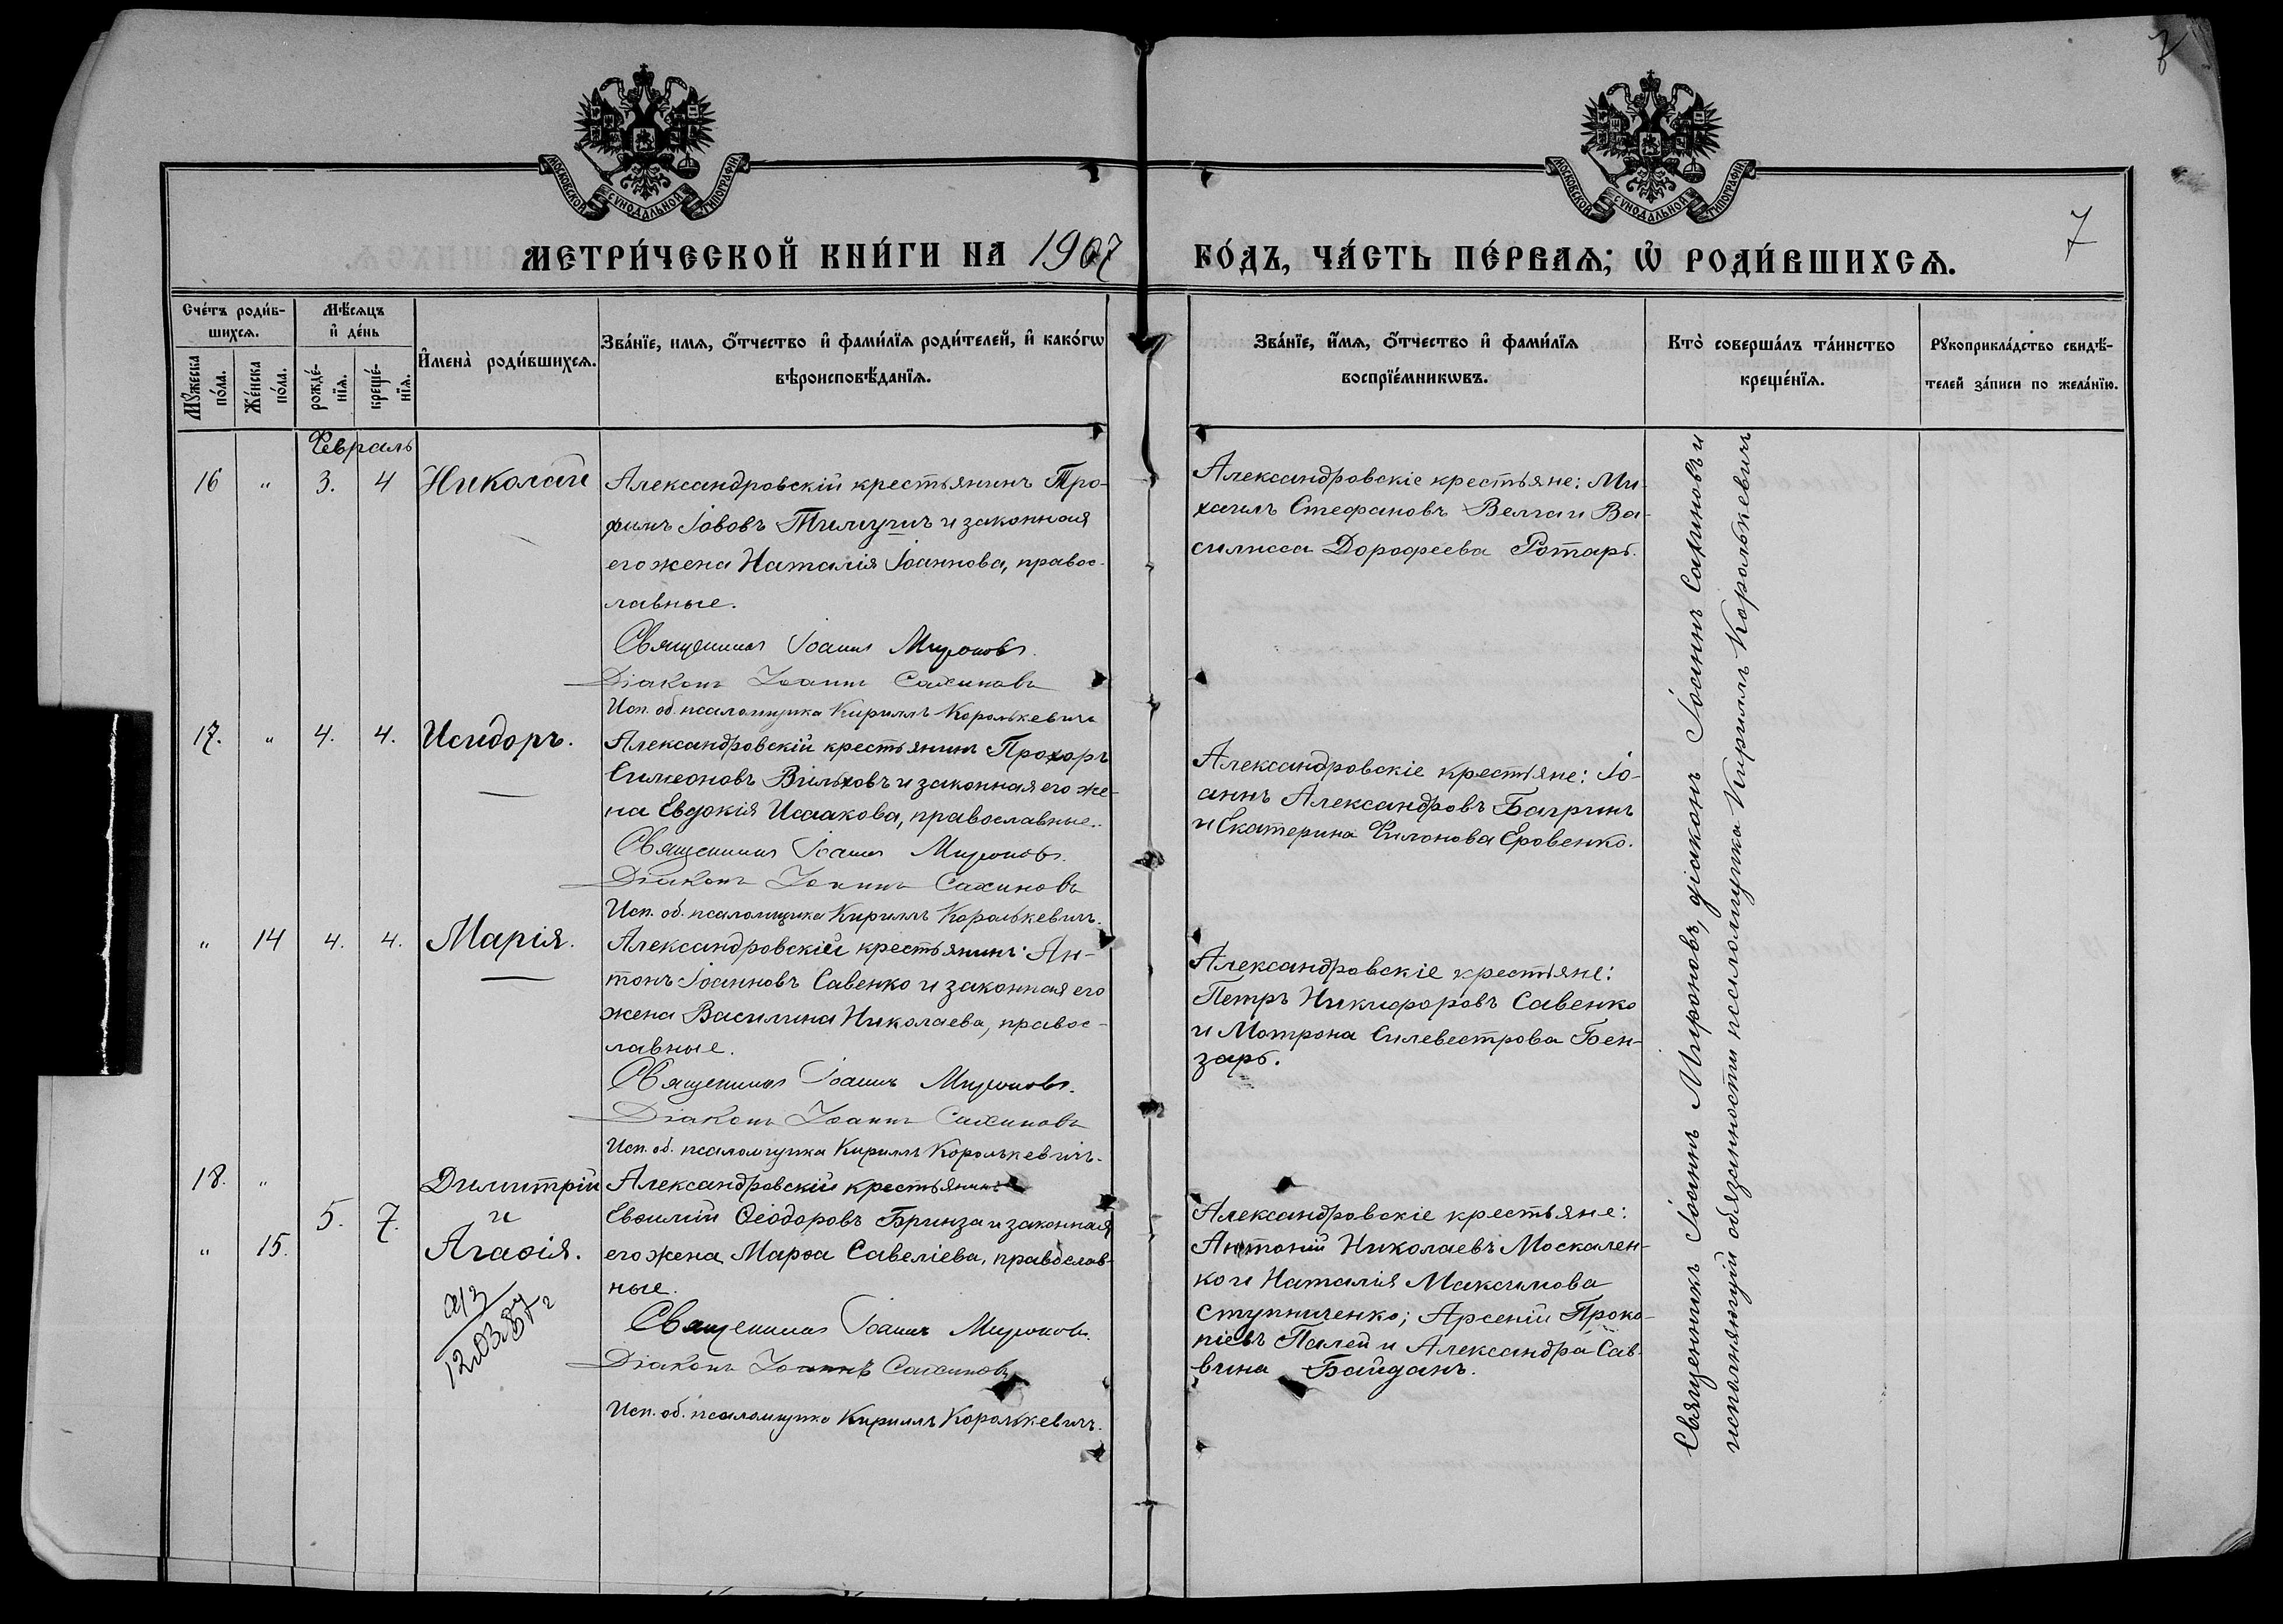 7
МОСКОВСКОЙ СУНОДАЛЬНОЙ ТИПОГРАФІИ
МОСКОВСКОЙ СУНОДАЛЬНОЙ ТИПОГРАФІИ
МЕТРИ́ЧЕСКОЙ КНИ́ГИ НА 1907
ГО́ДЪ, ЧА́СТЬ ПЕ́РВАѦ; Ѡ҆ РОДИ́ВШИХСѦ.
7
Сче́тъ роди́в-
шихсѧ.
Мꙋ́жеска по́ла.
Же́нска по́ла.
Мѣ́сѧцъ
и҆ де́нь
рожде́-
нїѧ.
креще́-
нїѧ.
И҆мена̀ роди́вшихсѧ.
Зва́нїе, имѧ, ѻ҆́тчество и҆ фами́лїѧ роди́телей, и҆ како́гѡ
вѣроисповѣ́данїѧ.
Зва́нїе, и҆́мѧ, ѻ҆́тчество и҆ фами́лїѧ
воспрїе́мникѡвъ.
Кто̀ соверша́лъ та́инство
креще́нїѧ.
Рꙋкоприкла́дство свидѣ́-
телей за́писи по жела́нїю.
Февраль
16 " 3. 4 Николай
Александровскій крестьянинъ Тро-
фимъ Іововъ Тимучинъ и законная
его жена Наталія Іоаннова, правос-
лавные.
Священникъ Іоаннъ Мироновъ.
Діаконъ Іоаннъ Сахиновъ
Исп. об. псаломщика Кириллъ Королькевичъ
Александровскіе крестьяне: Ми-
хаилъ Стефановъ Велган Ва-
силисса Дорофеева Ротарь.
17. " 4. 4. Исидоръ.
Александровскій крестьянинъ Прохоръ
Симеоновъ Вільховъ и законная его же-
на Евдокія Исаакова, православные.
Священникъ Іоаннъ Мироновъ.
Діаконъ Іоаннъ Сахиновъ
Исп. об. псаломщика Кириллъ Королькевичъ.
Александровскіе крестьяне: Іо-
аннъ Александровъ Багринъ
и Екатерина Филонова Еровенко.
" 14 4. 4. Марія.
Александровскій крестьянинъ: Ан-
тонъ Іоанновъ Савенко и законная его
жена Василина Николаева, правос-
лавные.
Священникъ Іоаннъ Мироновъ.
Діаконъ Іоаннъ Сахиновъ
Исп. об. псаломщика Кириллъ Королькевичъ.
Александровскіе крестьяне:
Петръ Никифоровъ Савенко
и Мотрона Силевестрова Бен-
зарь.
18. " Димитрій
и
5. 7.
" 15. Агаѳія.
Александровскій крестьянинъ
Евѳимій Ѳеодоровъ Бринза и законная
его жена Марѳа Савеліева, православ-
ные.
Священникъ Іоаннъ Мироновъ.
Діаконъ Іоаннъ Сахиновъ
Исп. об. псаломщика Кириллъ Королькевичъ.
Александровскіе крестьяне:
Антоній Николаевъ Москален-
ко и Наталія Максимова
Ступниченко; Арсеній Проко-
піевъ Палей и Александра Сав-
вина Байданъ.
Священникъ Іоаннъ Мироновъ, діаконъ Іоаннъ Сахиновъ и
исполняющій обязанности псаломщика Кириллъ Королькевичъ